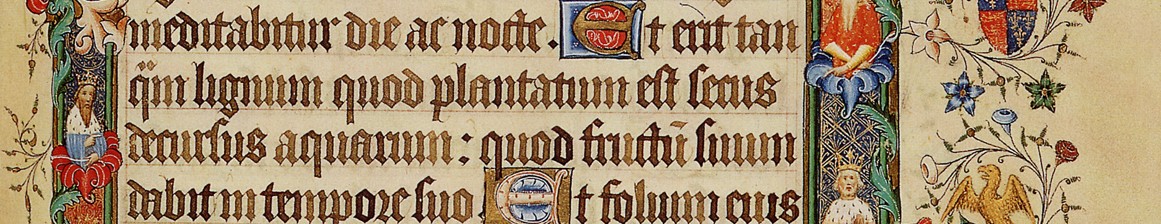 meditabitur die ac nocte. Et erit tan
q̄m lignum quod plantatum est secus
decursus aquarum: quod fructū suum
dabit in tempore suo Et folium eius